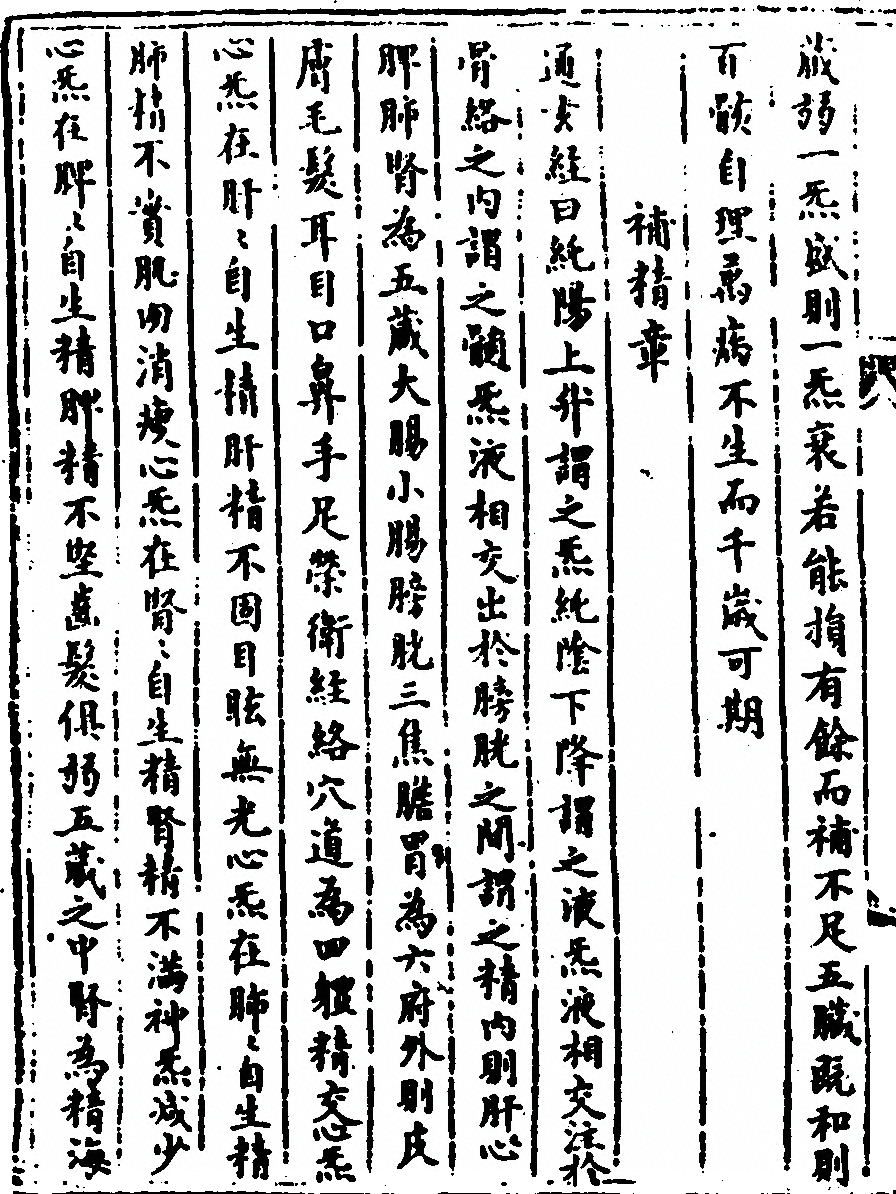 歲弱一炁盛則一炁衰若能損有餘而補不足五臟既和則
百骸自理萬病不生而千歲可期
補精章
通玄經曰純陽上升謂之炁純陰下降謂之液炁液相交注於
骨絡之內謂之髓炁液相交出於膀胱之間謂之精內則肝心
脾肺腎為五藏大腸小腸膀胱三焦膽胃為六府外則皮
膚毛髮耳目口鼻手足榮衛經絡穴道為四體精交心炁
心炁在肝〻自生精肝精不固目眩無光心炁在肺〻自生精
肺精不實肌肉消瘦心炁在腎〻自生精腎精不滿神炁減少
心炁在脾〻自生精脾精不堅齒髮俱弱五藏之中腎為精海